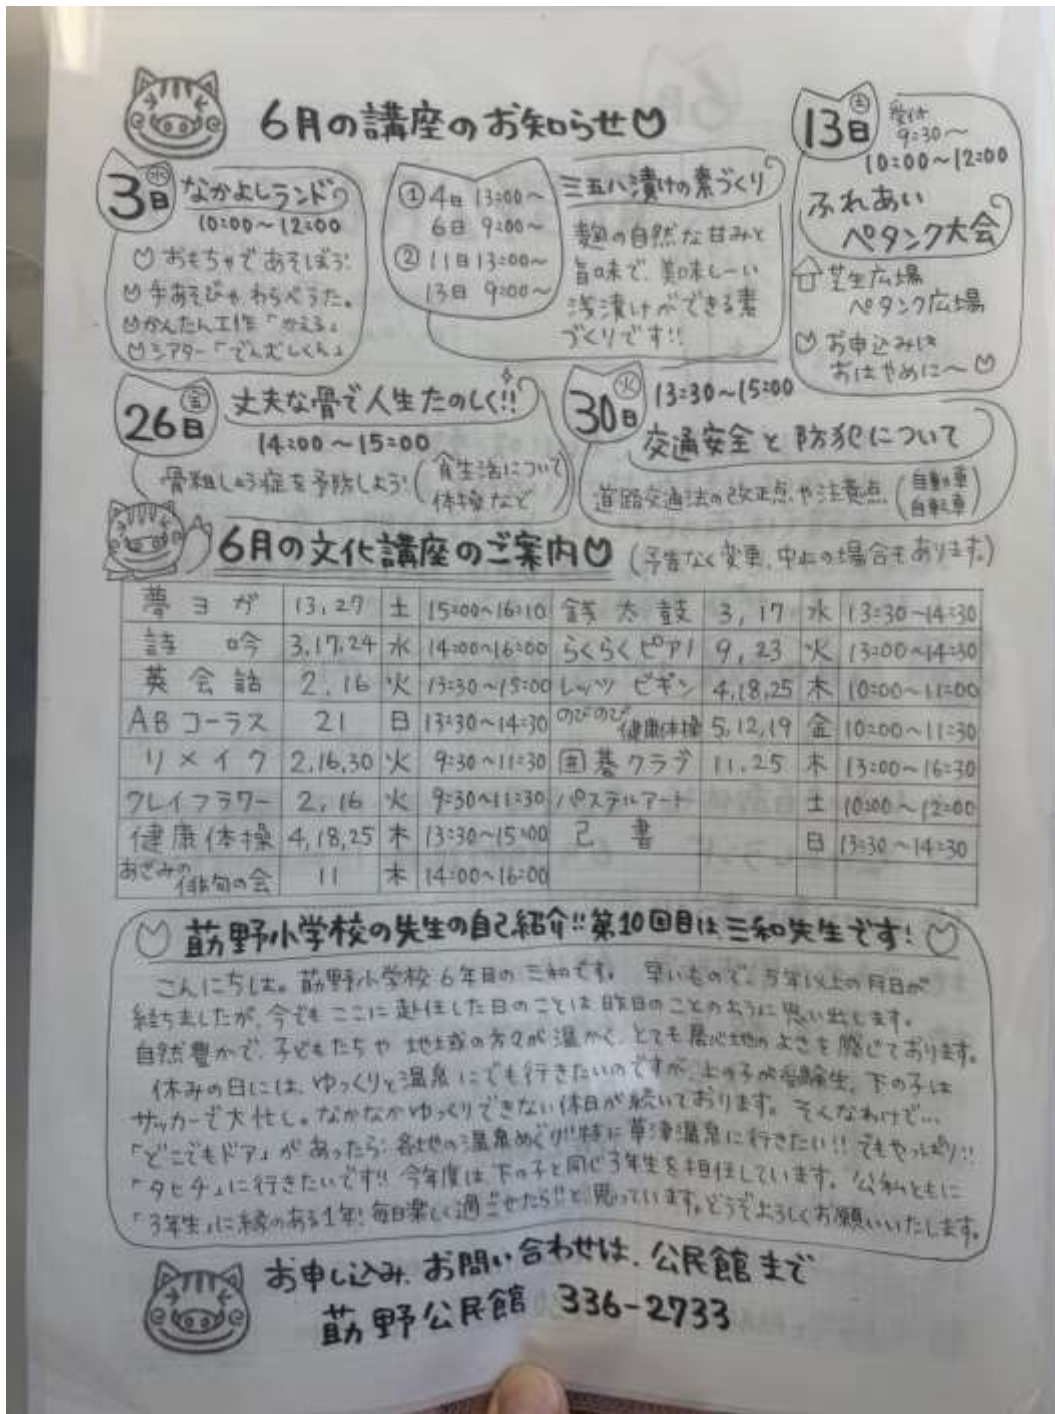 6月の講座のお知らせ
3日 ㊌
なかよしランド
10:00～12:00
おもちゃであそぼう!
手あそびやわらべうた。
かんたん工作「かえる」
シアター「でんむしくん」
① 4日 13:00～
6日 9:00～
② 11日 13:00～
13日 9:00～
三五八漬けの素づくり
麹の自然な甘みと
旨味で、美味しーい
浅漬けができる素
づくりです!!
13日 ㊏
受付
9:30～
10:00～12:00
ふれあい
ペタンク大会
芝生広場
ペタンク広場
お申込みは
おはやめに～
26日 ㊎
丈夫な骨で人生たのしく!!
14:00～15:00
骨粗しょう症を予防しよう!
(食生活について
体操など)
30日 ㊋
13:30～15:00
交通安全と防犯について
道路交通法の改正点や注意点
(自動車
自転車)
6月の文化講座のご案内
(予告なく変更、中止の場合もあります。)
夢ヨガ 13,27 土 15:00～16:10 銭太鼓 3,17 水 13:30～14:30
詩吟 3,17,24 水 14:00～16:00 らくらくピアノ 9,23 火 13:00～14:30
英会話 2,16 火 13:30～15:00 レッツビギン 4,18,25 木 10:00～11:00
ABコーラス 21 日 13:30～14:30 のびのび健康体操 5,12,19 金 10:00～11:30
リメイク 2,16,30 火 9:30～11:30 囲碁クラブ 11,25 木 13:00～16:30
クレイフラワー 2,16 火 9:30～11:30 パステルアート 土 10:00～12:00
健康体操 4,18,25 木 13:30～15:00 己書 日 13:30～14:30
あざみの俳句の会 11 木 14:00～16:00
莇野小学校の先生の自己紹介!!第10回目は、三和先生です!
こんにちは。莇野小学校6年目の三和です。 早いもので、5年以上の月日が
経ちましたが、今でもここに赴任した日のことは、昨日のことのように思い出します。
自然豊かで、子どもたちや地域の方々が温かく、とても居心地のよさを感じております。
休みの日には、ゆっくりと温泉にでも行きたいのですが、上の子が受験生、下の子は
サッカーで大忙し。なかなかゆっくりできない休日が続いております。 そんなわけで…
「どこでもドア」があったら…各地の温泉めぐり!!特に草津温泉に行きたい!! でもやっぱり!!
「タヒチ」に行きたいです!! 今年度は、下の子と同じ3年生を担任しています。 公私ともに
「3年生」に縁のある1年! 毎日楽しく過ごせたら!!と思っています。どうぞよろしくお願いいたします。
お申し込み、お問い合わせは、公民館まで
莇野公民館 336-2733